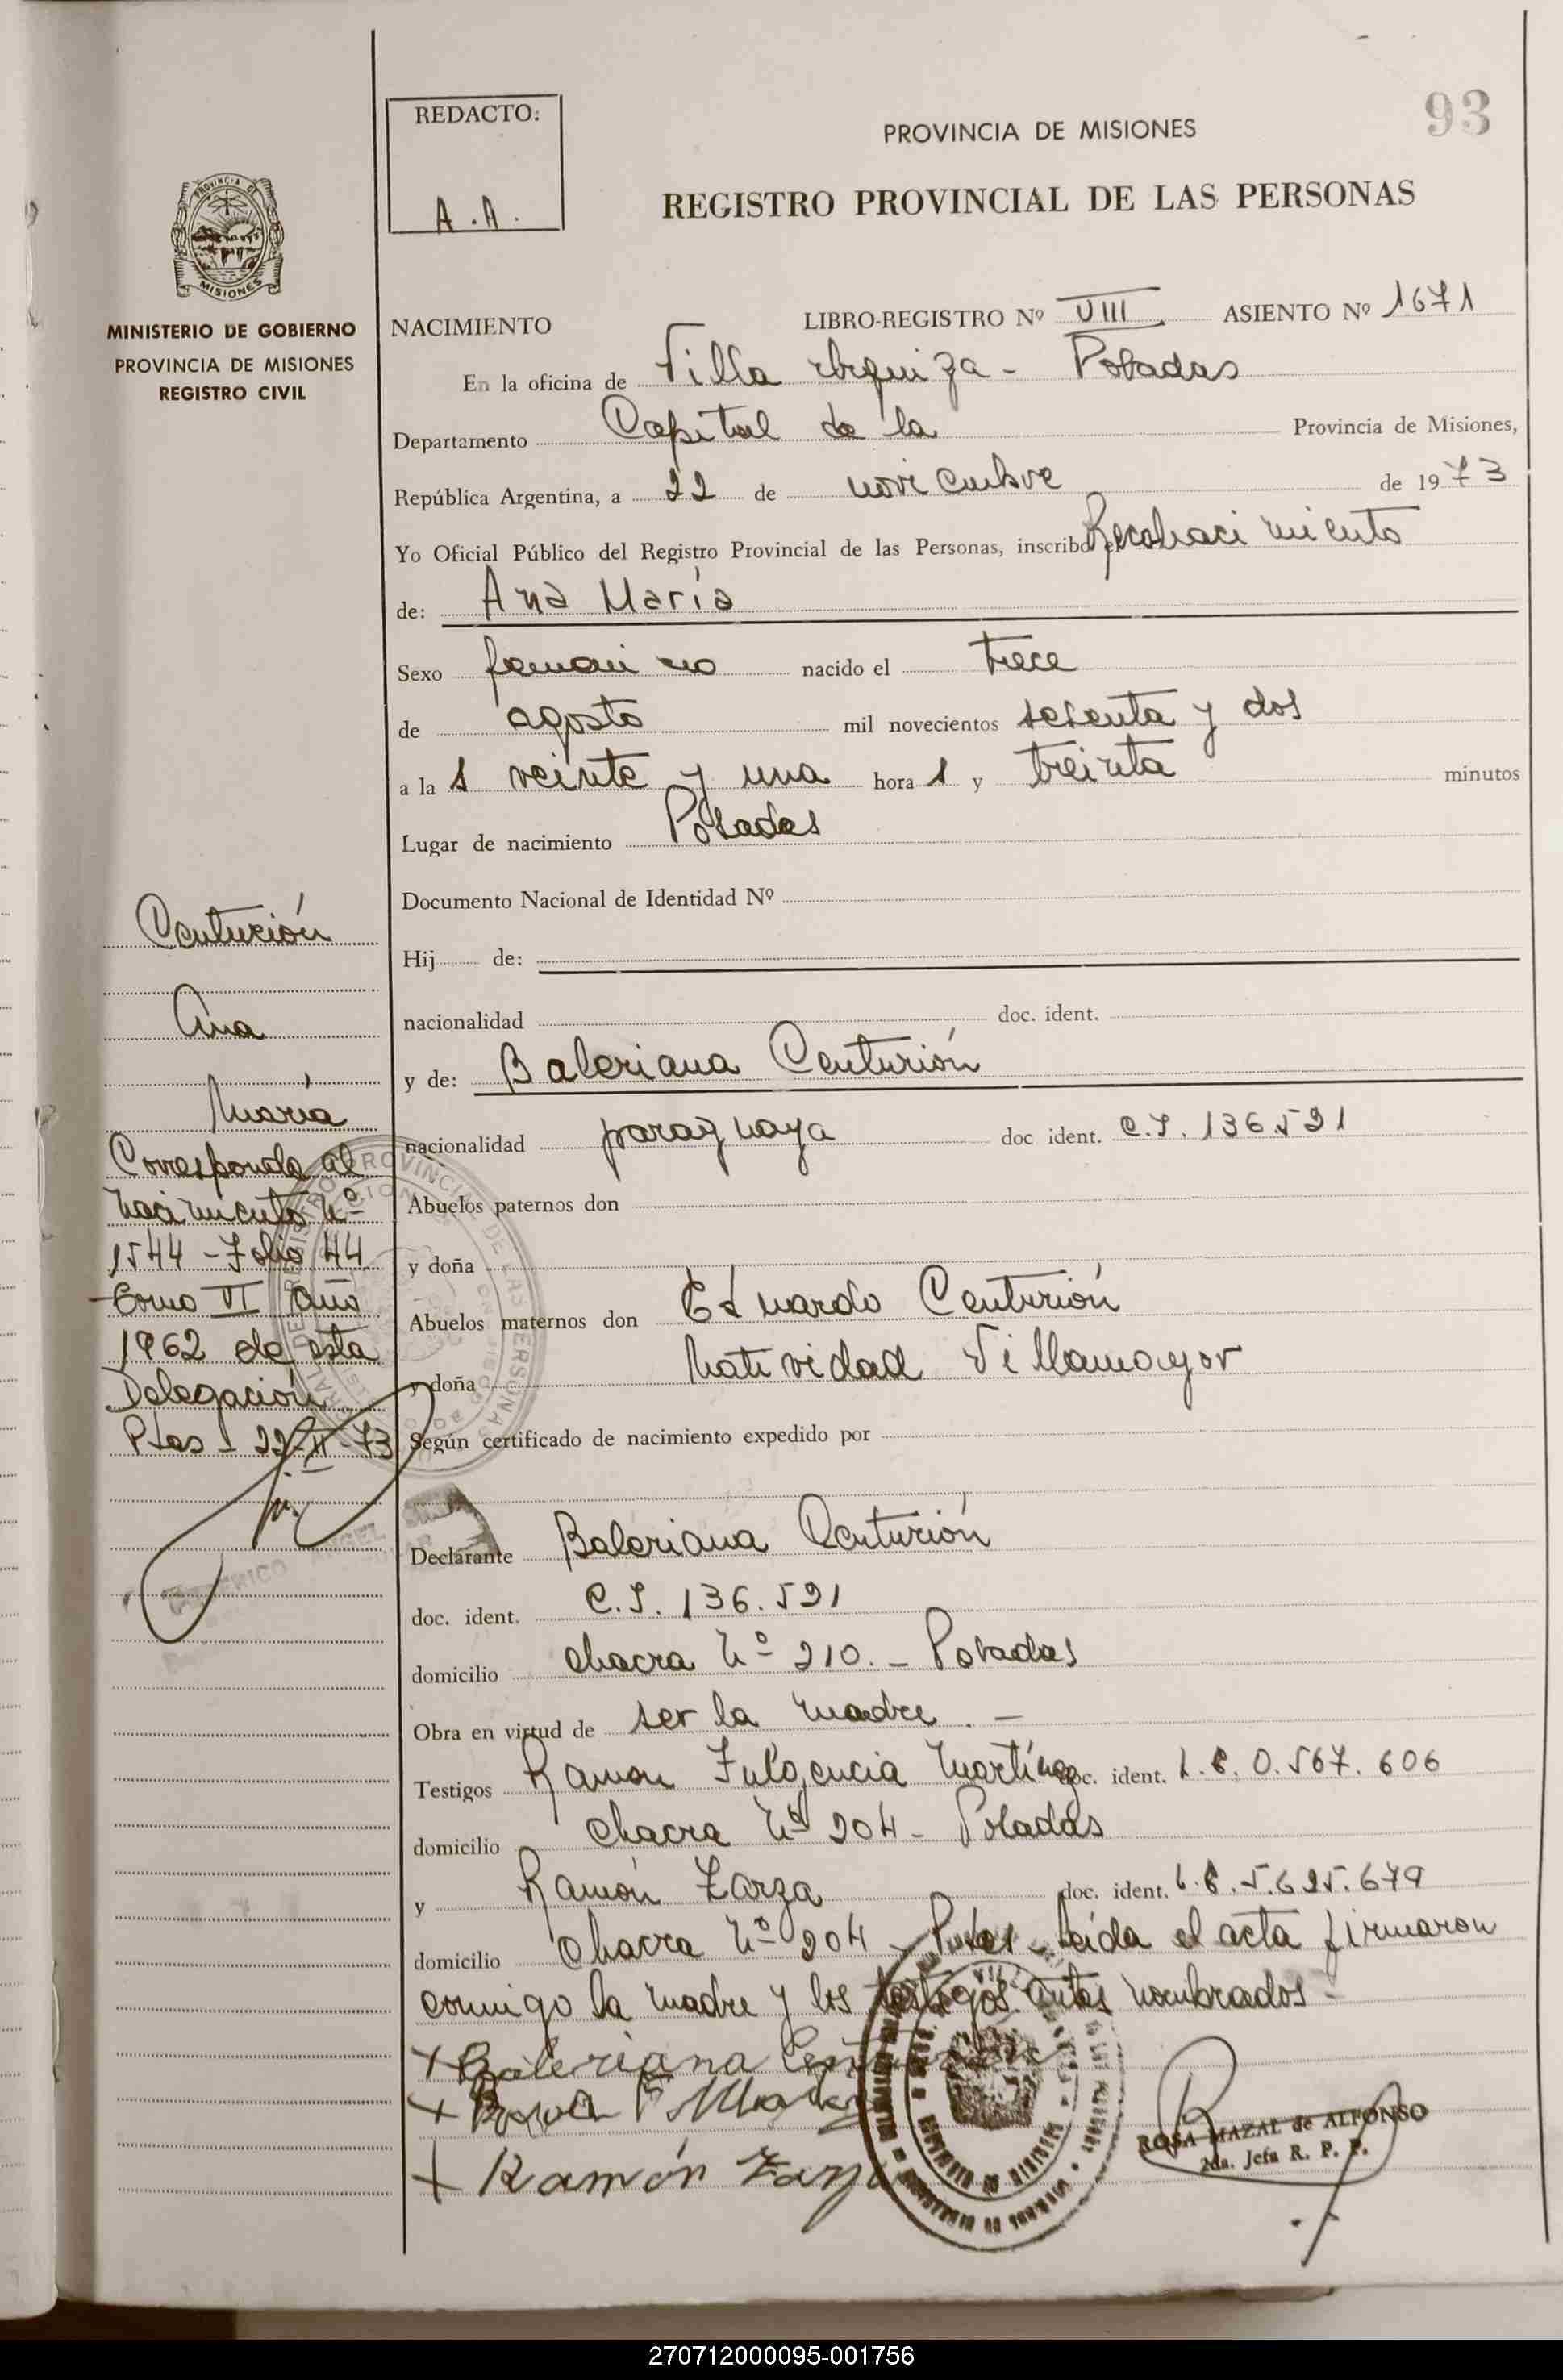 93
REDACTO:
A.A.
PROVINCIA DE MISIONES
REGISTRO PROVINCIAL DE LAS PERSONAS
PROVINCIA DE
MISIONES
MINISTERIO DE GOBIERNO
PROVINCIA DE MISIONES
REGISTRO CIVIL
NACIMIENTO LIBRO-REGISTRO Nº VIII ASIENTO Nº 1671
En la oficina de Villa Urquiza - Posadas
Departamento Capital de la Provincia de Misiones,
República Argentina, a 22 de noviembre de 1973
Yo Oficial Público del Registro Provincial de las Personas, inscribo el Reconocimiento
de: Ana María
Sexo femenino nacido el trece
de agosto mil novecientos sesenta y dos
a la s veinte y una hora s y treinta minutos
Lugar de nacimiento Posadas
Documento Nacional de Identidad Nº
Hij de:
nacionalidad doc. ident.
y de: Baleriana Centurión
nacionalidad paraguaya doc ident. C.I. 136.591
Abuelos paternos don
y doña
Abuelos maternos don Eduardo Centurión
y doña Natividad Villamayor
Según certificado de nacimiento expedido por
Declarante Baleriana Centurión
doc. ident. C.I. 136.591
domicilio chacra Nº 210. - Posadas
Obra en virtud de ser la madre. -
Testigos Ramon Fulgencia Martínez doc. ident. L.E. 0.567.606
domicilio chacra Nº 204 - Posadas
y Ramón Zarza doc. ident. L.E. 5.695.679
domicilio Chacra Nº 204 - Pdas - Leída el acta firmaron
conmigo la madre y los testigos antes nombrados -
+ Baleriana Centurión
+ Ramón Zarza
ROSA MAZAL de ALFONSO
2da. Jefa R. P. P.
Centurión
Ana
María
Corresponde al
nacimiento Nº
1544 - Folio 44
Tomo VI año
1962 de esta
Delegación
Pdas - 22-XI-73
270712000095-001756